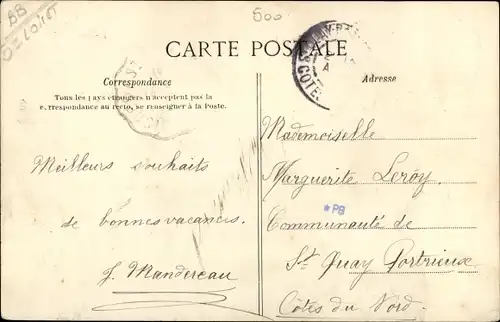 BB
500
CARTE POSTALE
Correspondance
Tous les pays étrangers n'acceptent pas la
correspondance au recto, se renseigner à la Poste.
Adresse
Meilleurs souhaits
de bonnes vacances.
J. Mandereau
Mademoiselle
Marguerite Leroy.
*PB
Communauté de
St Quay Portrieux
Côtes du Nord.